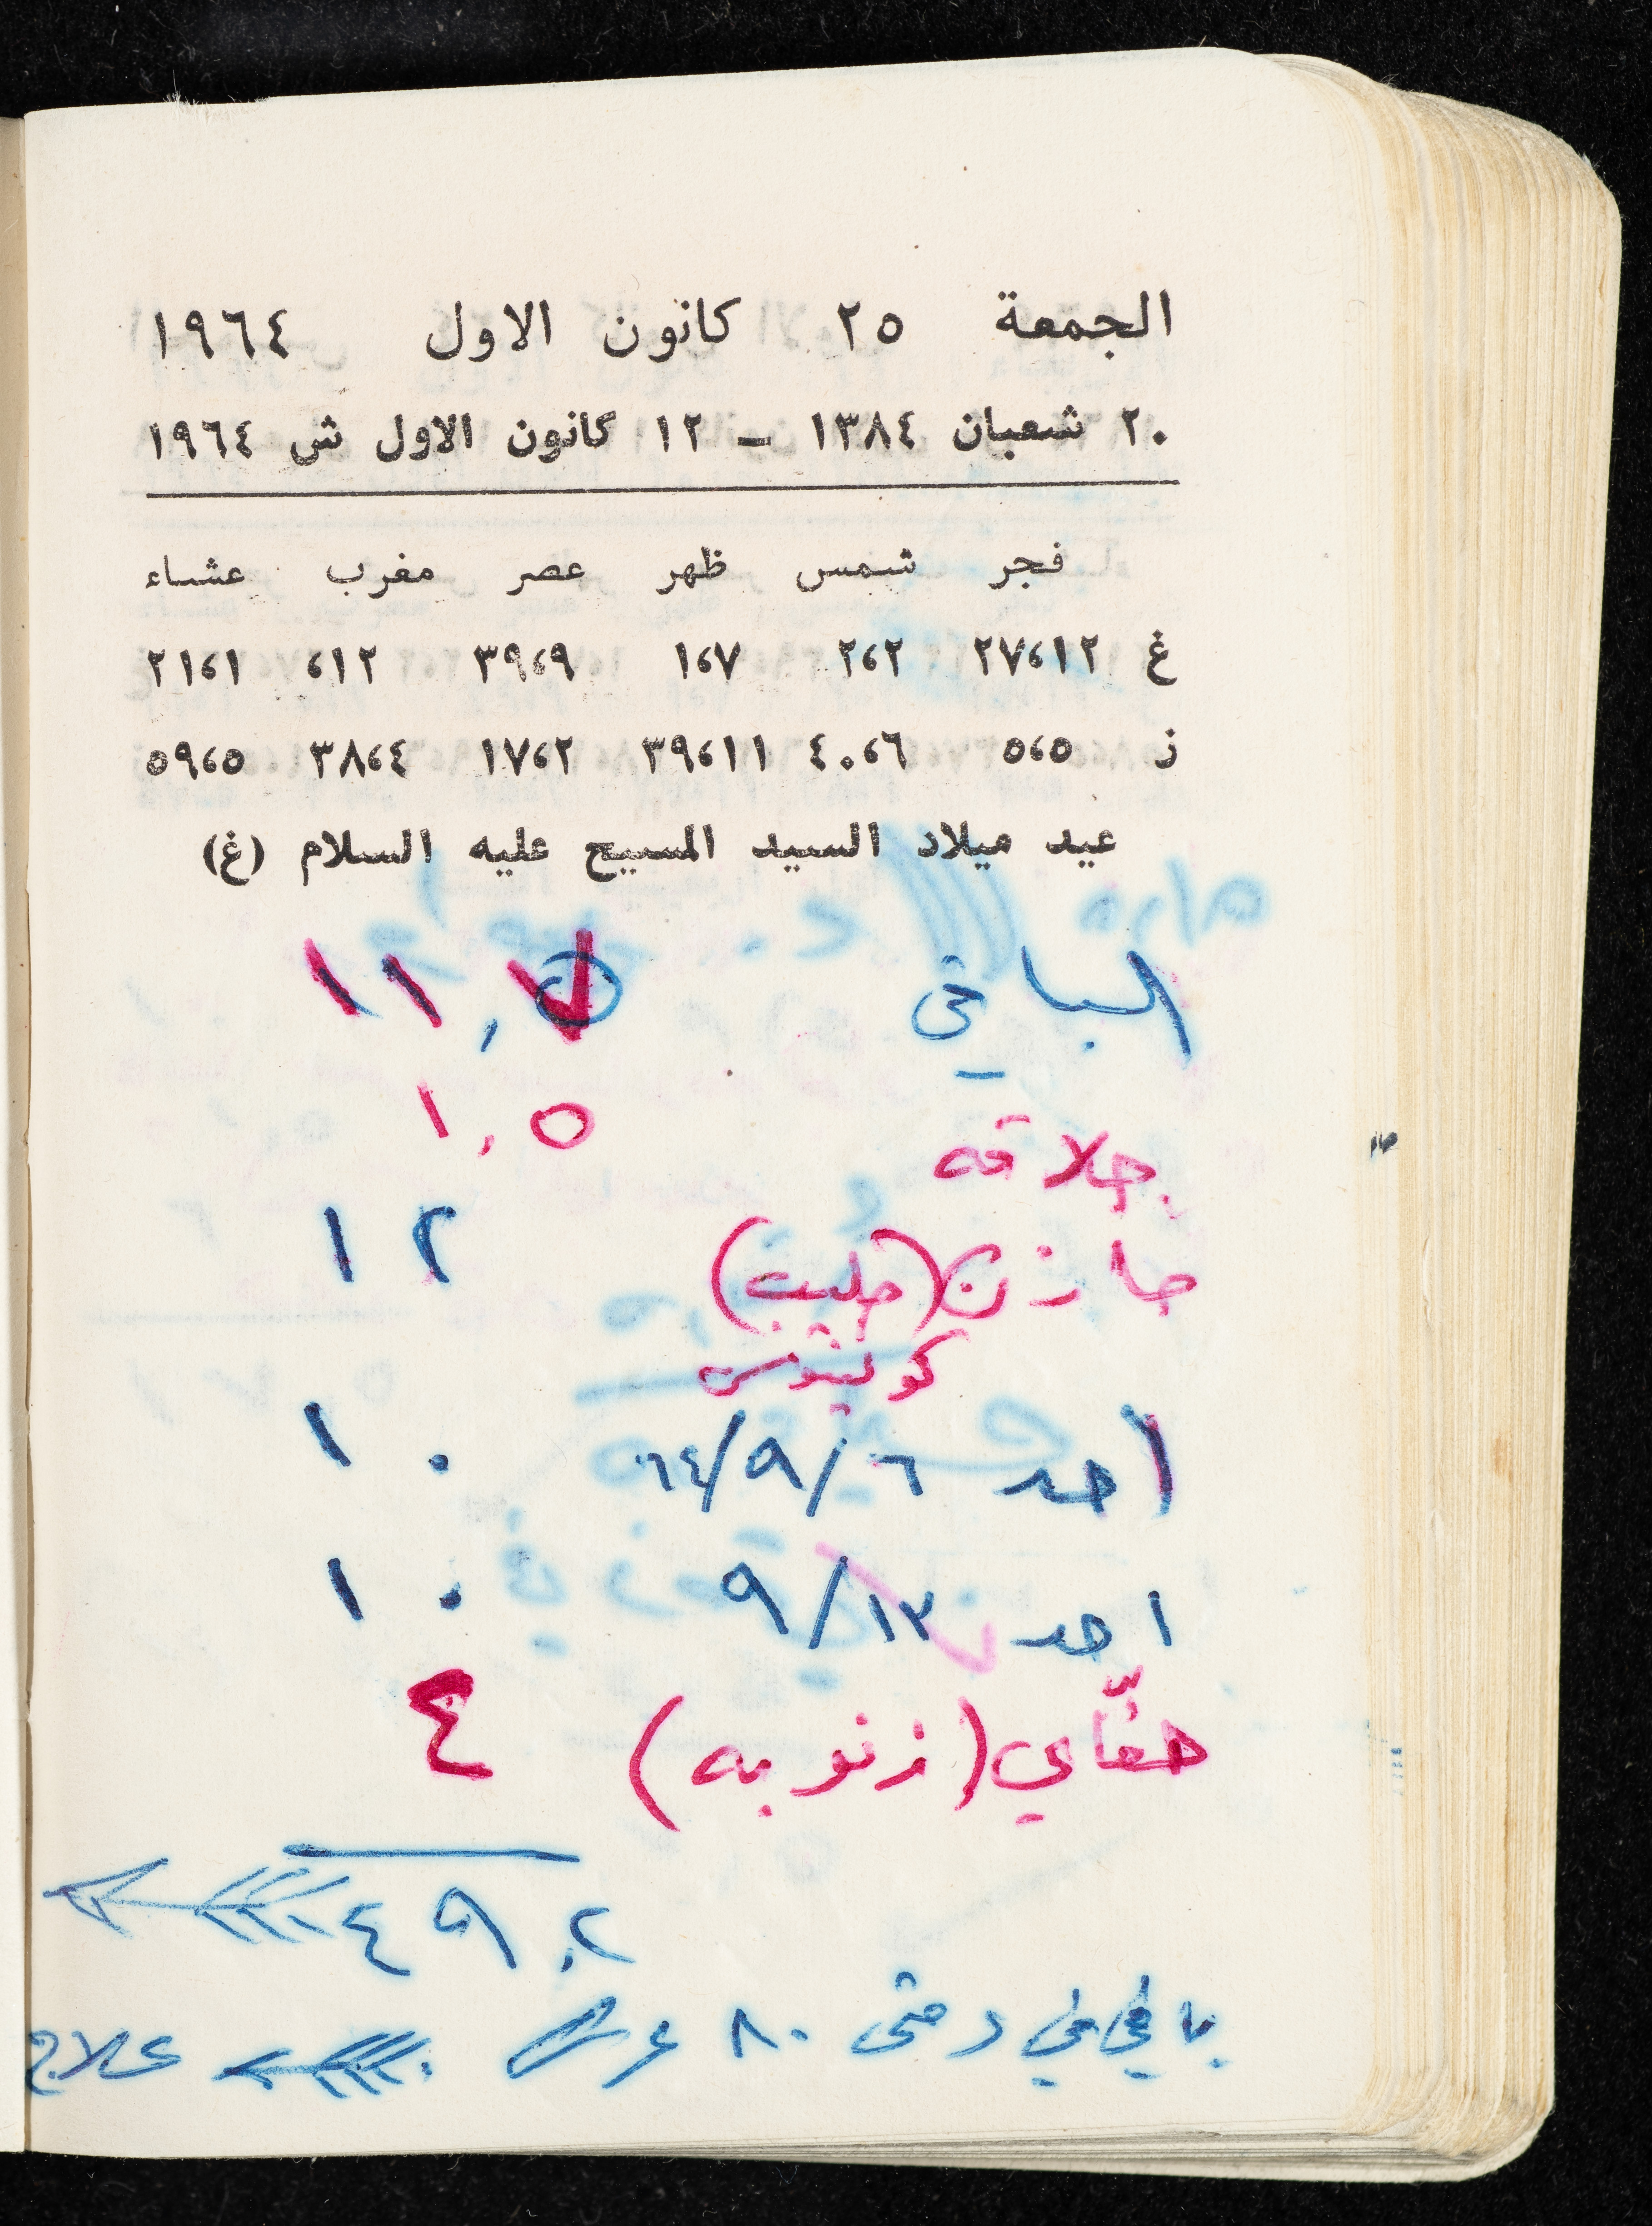 الجمعة ٢٥ كانون الاول ١٩٦٤
٢٠ شعبان ١٣٨٤ – ١٢ كانون الاول ش ١٩٦٤
فجر شمس ظهر عصر مغرب عشاء
غ ٢٧،١٢ ٢،٢ ١،٧ ٣٩،٩ ،١٢ ٢١،١
ز ٥،٥ ٤٠،٦ ٣٩،١١ ١٧،٢ ٣٨،٤ ٥٩،٥
عيد ميلاد السيد المسيح عليه السلام (غ)
الباقي ١١,٧
حلاقه ١,٥
خازن (حليب) ١٢
احد ٦/٩/٦٤ ١٠
احد ١٣/٩ ١٠
حفّاي (زنوبه) ٤
٤٩,٢
باقي لي ٨٠ غرش علاج